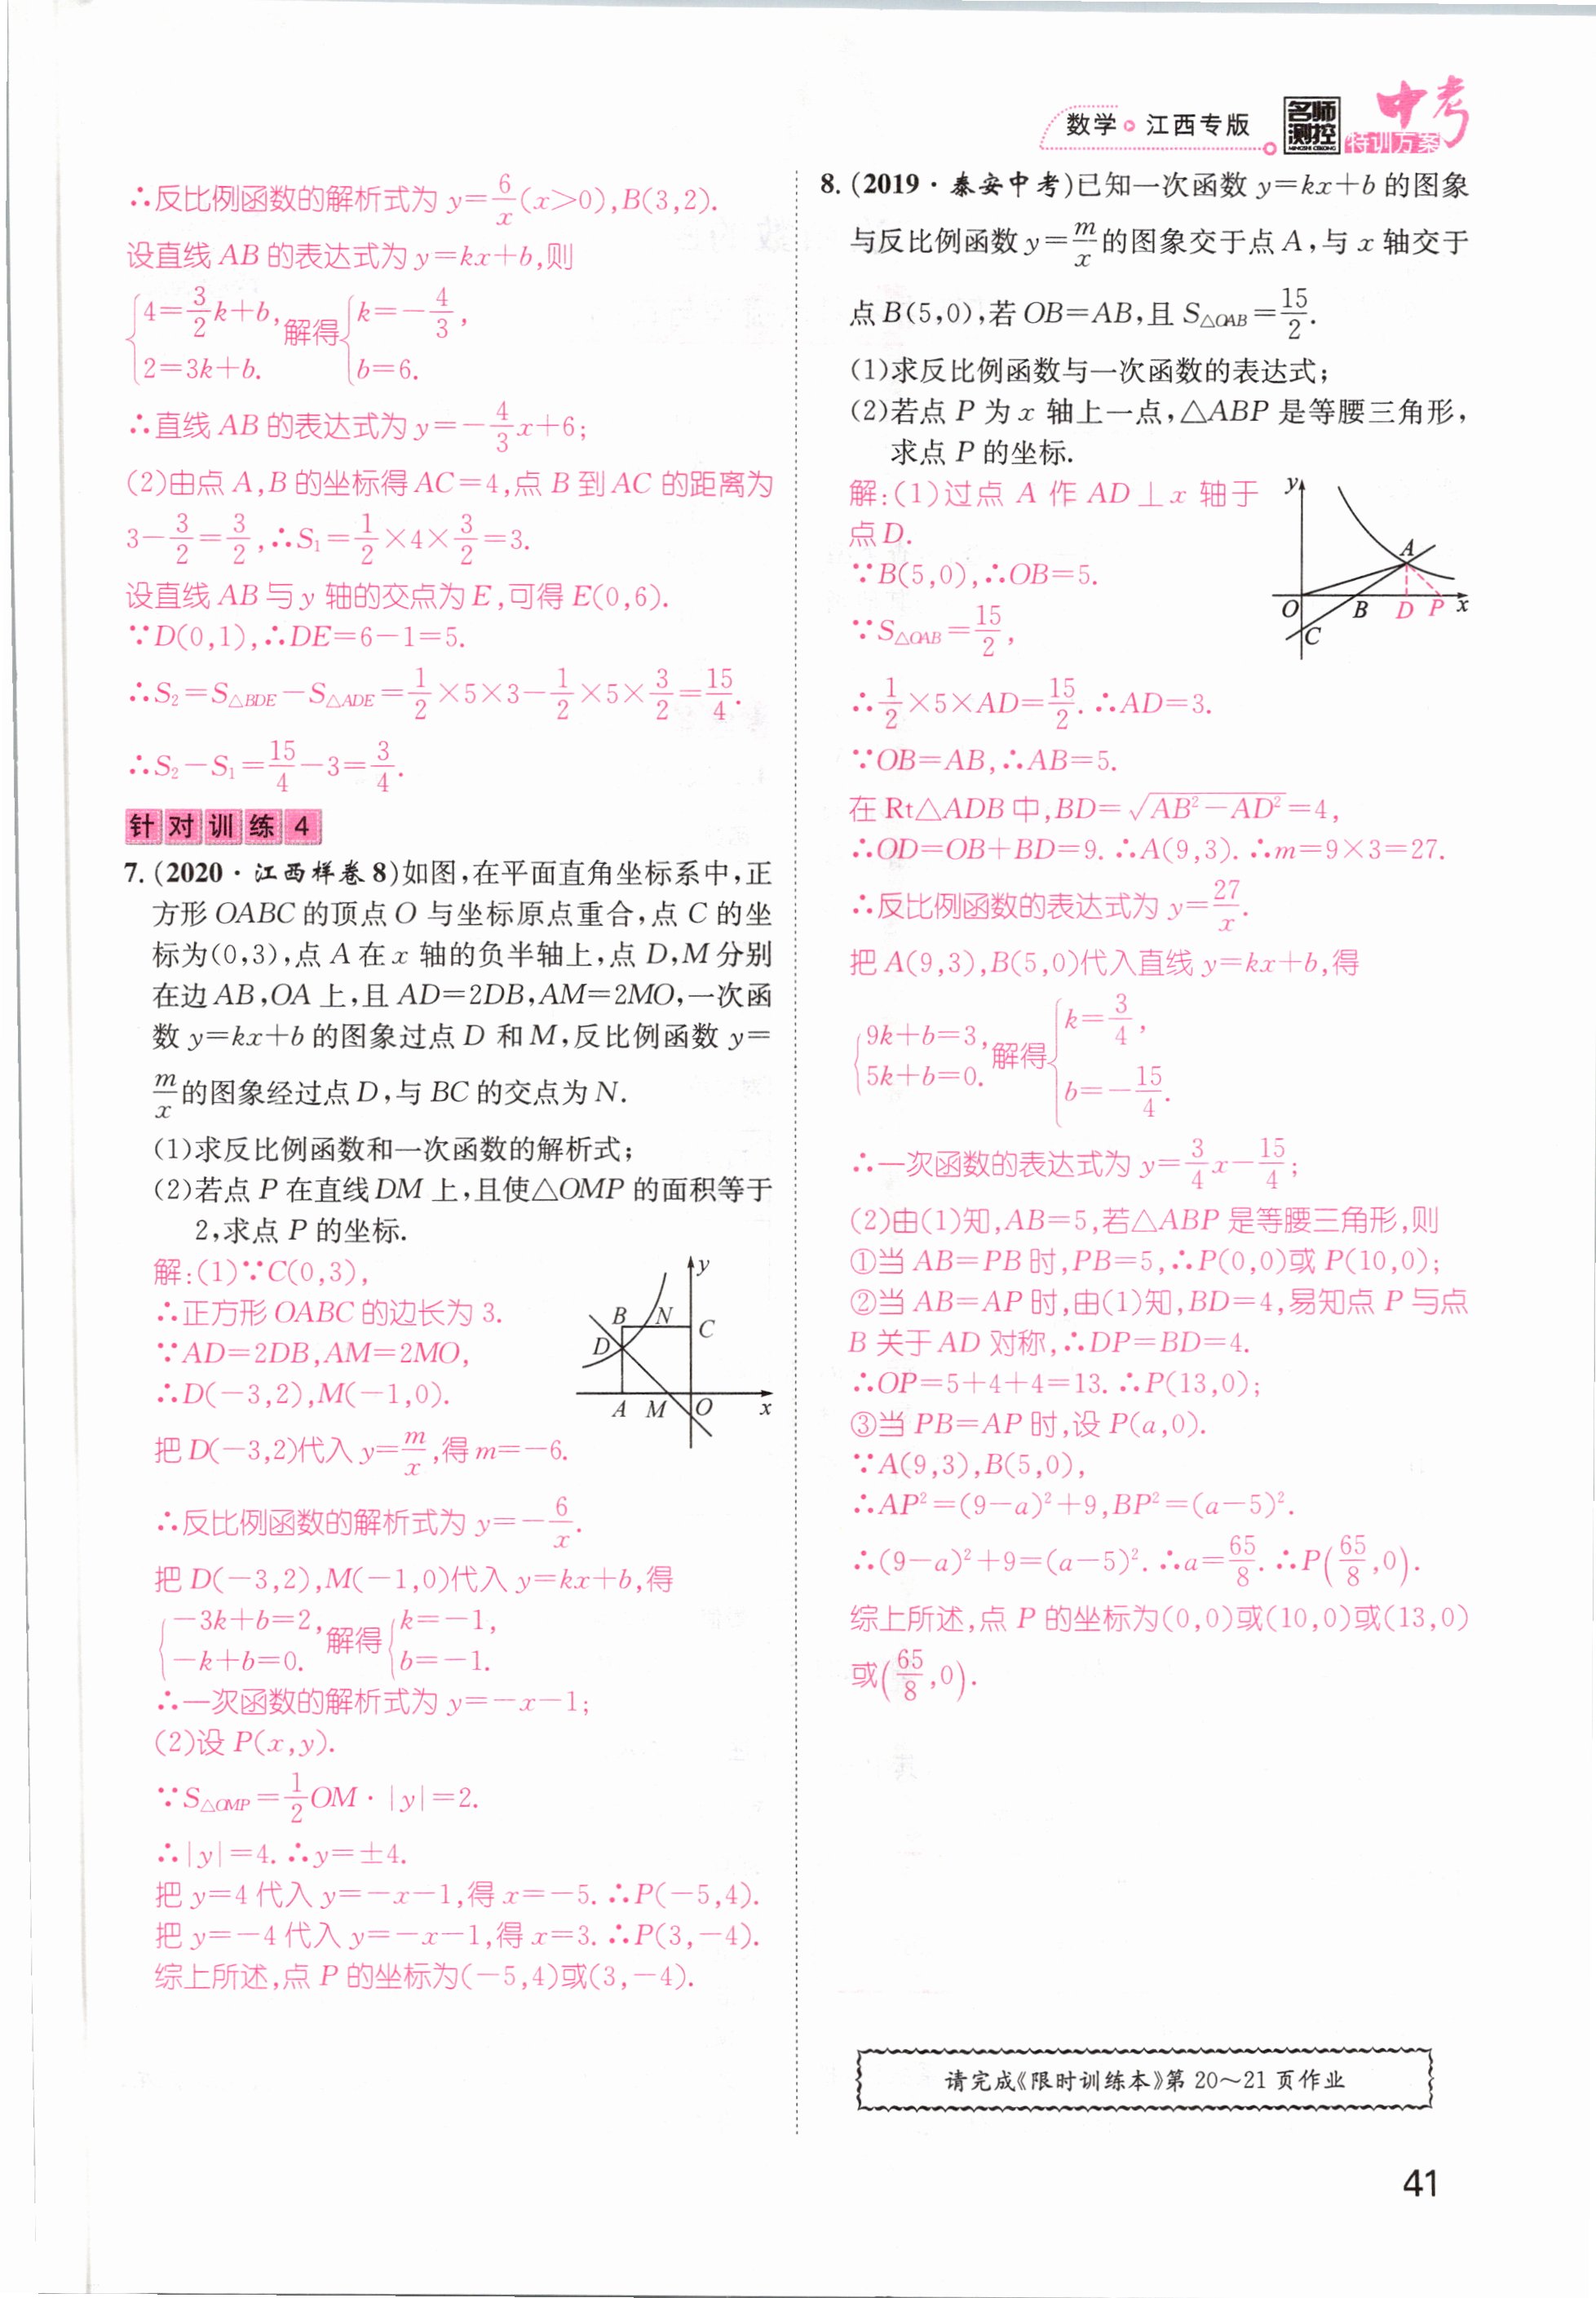 数学 江西专版 名师测控 中考特训方案
∴反比例函数的解析式为 y=6/x(x>0),B(3,2).
设直线 AB 的表达式为 y=kx+b,则
{4=3/2k+b, 2=3k+b. 解得 {k=-4/3, b=6.
∴直线 AB 的表达式为 y=-4/3x+6;
(2)由点 A,B 的坐标得 AC=4,点 B 到 AC 的距离为
3-3/2=3/2,∴S₁=1/2×4×3/2=3.
设直线 AB 与 y 轴的交点为 E,可得 E(0,6).
∵D(0,1),∴DE=6-1=5.
∴S₂=S△BDE-S△ADE=1/2×5×3-1/2×5×3/2=15/4.
∴S₂-S₁=15/4-3=3/4.
针对训练 4
7.(2020·江西样卷8)如图,在平面直角坐标系中,正
方形 OABC 的顶点 O 与坐标原点重合,点 C 的坐
标为(0,3),点 A 在 x 轴的负半轴上,点 D,M 分别
在边 AB,OA 上,且 AD=2DB,AM=2MO,一次函
数 y=kx+b 的图象过点 D 和 M,反比例函数 y=
m/x的图象经过点 D,与 BC 的交点为 N.
(1)求反比例函数和一次函数的解析式;
(2)若点 P 在直线 DM 上,且使△OMP 的面积等于
2,求点 P 的坐标.
解:(1)∵C(0,3),
∴正方形 OABC 的边长为 3.
∵AD=2DB,AM=2MO,
∴D(-3,2),M(-1,0).
把 D(-3,2)代入 y=m/x,得 m=-6.
∴反比例函数的解析式为 y=-6/x.
把 D(-3,2),M(-1,0)代入 y=kx+b,得
{-3k+b=2, -k+b=0. 解得 {k=-1, b=-1.
∴一次函数的解析式为 y=-x-1;
(2)设 P(x,y).
∵S△OMP=1/2OM·|y|=2.
∴|y|=4.∴y=±4.
把 y=4 代入 y=-x-1,得 x=-5.∴P(-5,4).
把 y=-4 代入 y=-x-1,得 x=3.∴P(3,-4).
综上所述,点 P 的坐标为(-5,4)或(3,-4).
y
B N C
D
A M O x
8.(2019·泰安中考)已知一次函数 y=kx+b 的图象
与反比例函数 y=m/x的图象交于点 A,与 x 轴交于
点 B(5,0),若 OB=AB,且 S△OAB=15/2.
(1)求反比例函数与一次函数的表达式;
(2)若点 P 为 x 轴上一点,△ABP 是等腰三角形,
求点 P 的坐标.
解:(1)过点 A 作 AD⊥x 轴于
点 D.
∵B(5,0),∴OB=5.
∵S△OAB=15/2,
y
A
O B D P x
C
∴1/2×5×AD=15/2.∴AD=3.
∵OB=AB,∴AB=5.
在 Rt△ADB 中,BD=√(AB²-AD²)=4,
∴OD=OB+BD=9.∴A(9,3).∴m=9×3=27.
∴反比例函数的表达式为 y=27/x.
把 A(9,3),B(5,0)代入直线 y=kx+b,得
{9k+b=3, 5k+b=0. 解得 {k=3/4, b=-15/4.
∴一次函数的表达式为 y=3/4x-15/4;
(2)由(1)知,AB=5,若△ABP 是等腰三角形,则
①当 AB=PB 时,PB=5,∴P(0,0)或 P(10,0);
②当 AB=AP 时,由(1)知,BD=4,易知点 P 与点
B 关于 AD 对称,∴DP=BD=4.
∴OP=5+4+4=13.∴P(13,0);
③当 PB=AP 时,设 P(a,0).
∵A(9,3),B(5,0),
∴AP²=(9-a)²+9,BP²=(a-5)².
∴(9-a)²+9=(a-5)².∴a=65/8.∴P(65/8,0).
综上所述,点 P 的坐标为(0,0)或(10,0)或(13,0)
或(65/8,0).
请完成《限时训练本》第 20~21 页作业
41